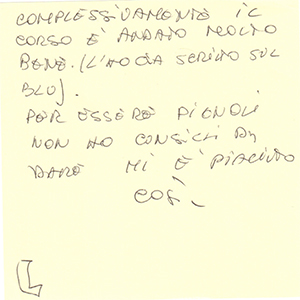 COMPLESSIVAMENTE IL
CORSO È ANDATO MOLTO
BENE. (L'HO GIÀ SCRITTO SUL
BLU).
PER ESSERE PIGNOLI
NON HO CONSIGLI DA
DARE MI È PIACIUTO
COSÌ